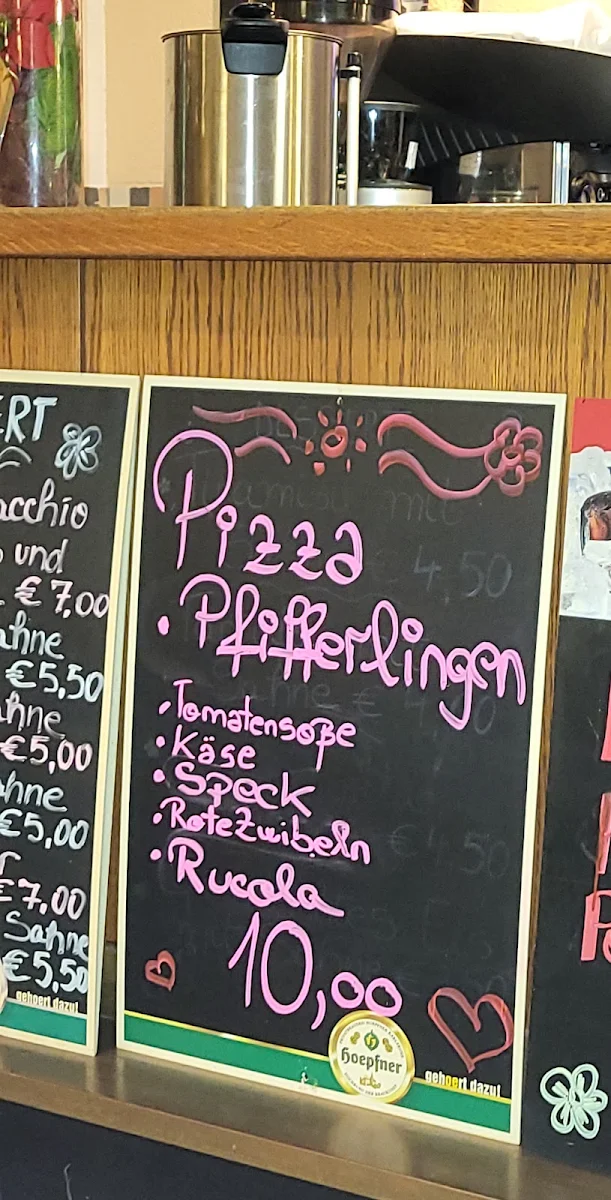 ERT
acchio
und
€ 7,00
ahne
€5,50
ahne
€5,00
ahne
€5,00
€7,00
Sahne
€5,50
gehoert dazu!
Pizza
• Pfifferlingen
• Tomatensoße
• Käse
• Speck
• Rote Zwibeln
• Rucola
10,00
Hoepfner
gehoert dazu!